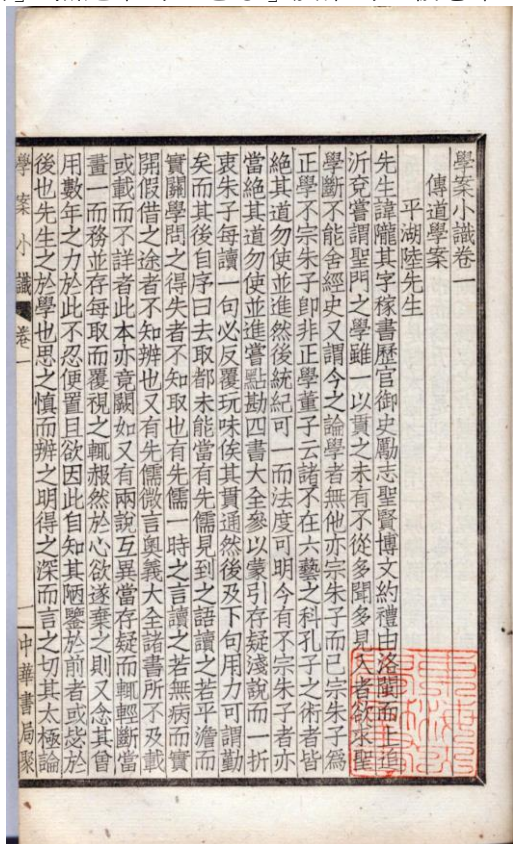 學案小識卷一
傳道學案
平湖陸先生
先生諱隴其字稼書歷官御史勵志聖賢博文約禮由洛閩而上追
沂兗嘗謂聖門之學雖一以貫之未有不從多聞多見入者欲求聖
學斷不能舍經史又謂今之論學者無他亦宗朱子而已宗朱子爲
正學不宗朱子卽非正學董子云諸不在六藝之科孔子之術者皆
絕其道勿使並進然後統紀可一而法度可明今有不宗朱子者亦
當絕其道勿使並進嘗點勘四書大全參以蒙引存疑淺說而一折
衷朱子每讀一句必反覆玩味俟其貫通然後及下句用力可謂勤
矣而其後自序曰去取都未能當有先儒見到之語讀之若平澹而
實關學問之得失者不知取也有先儒一時之言讀之若無病而實
開假借之途者不知辨也又有先儒微言奧義大全諸書所不及載
或載而不詳者此本亦竟闕如又有兩說互異當存疑而輒輕斷當
畫一而務並存每取而覆視之輒赧然於心欲遂棄之則又念其曾
用數年之力於此不忍便置且欲因此自知其陋鑒於前者或毖於
後也先生之於學也思之慎而辨之明得之深而言之切其太極論
學案小識 卷一 一 中華書局聚